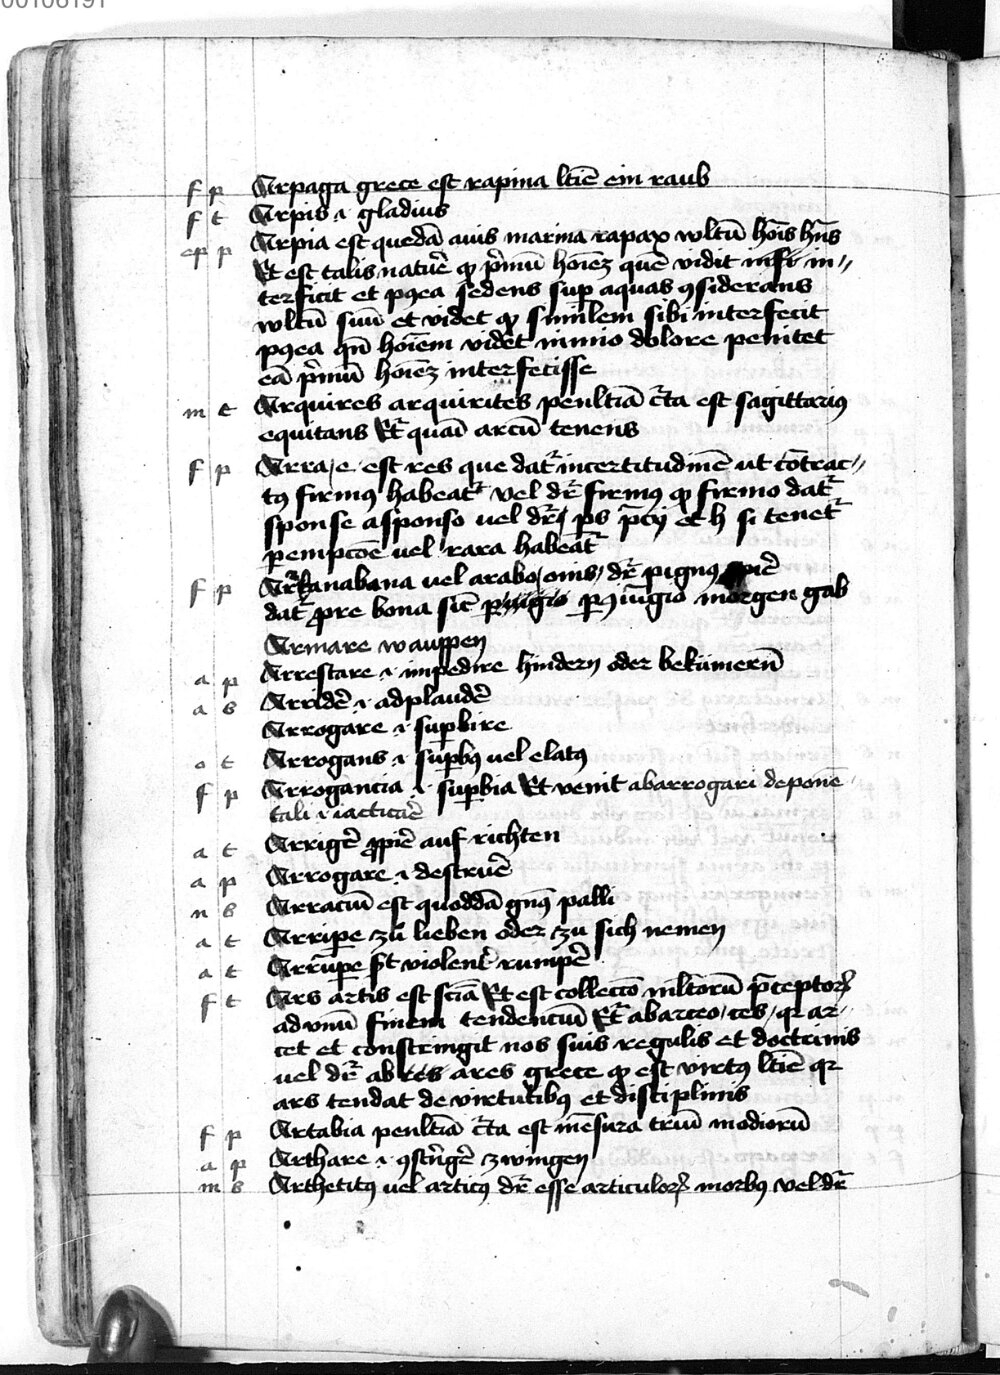 00106191
f p Arpaga grece est rapina ltiē ein raub
f t Arpis .i. gladius
ep p Arpia est quedā auis marina rapax wltū hoīs hn̄s
Et est talis natur̄e qƺ p̄mū hoīeƺ quē vidit in//
terficit et p9ea sedens sup aquas 9siderans
wltū suū et videt qƺ similem sibi interfecit
p9ea qn̄ hoīem videt nimio dolore penitet
eā p̄mū hoīeƺ interfecisse
m t Arquires arquirites penltīa c̄ta est sagittarius
equitans Et quāi arcū tenens
f p Arra/e est res que dat᷑ incertitudinē ut cōtrac//
t9 firm9 habeat᷑ vel dr̄ firm9 qƺ firmo dat᷑
sponse asponso uel dr̄ p̄cij et h si tenet᷑
p empcōē uel rara habeat᷑
f p Arrhanabana uel arabo/onis/ dr̄ pign9
dat᷑ pre bona sic̄ p 9iūgio morgen gab
Armare wauppen
a p Arrestare .i. impedire hindern oder bekümern̄
a s Arridē .i. adplaudē
Arrogare .i. supbire
o t Arrogans .i. supb9 uel elat9
f p Arrogancia .i. supbia Et venit abarrogari deponē
tali .i. iacticiāē
a t Arrigē ꝓpīē auf richten
a p Arrogare .i. destruē
n s Arraciū est quoddā gn̄9 palli
a t Arripe zū lieben oder zu sich nemen
a t Arrūpe st̄ violent᷑ rumpē
f t Ars artis est sciā Et est collectō mltorū p̄ceptoꝝ
ad vnū finem tendenciū Et abarceo/ces/ qꝛ ar//
cet et constringit nos suis regulis et doctrinis
uel dr̄ ab ares grece qƺ est virt9 ltiē qꝛ
ars tendat de virtutib9 et disciplinis
f p Artabia penltīa c̄ta est mēsura triū modiorū
a p Arthare .i. 9strīgē zwingen
m s Arthetic9 uel artic9 dr̄ esse articuloꝝ morb9 vel dr̄